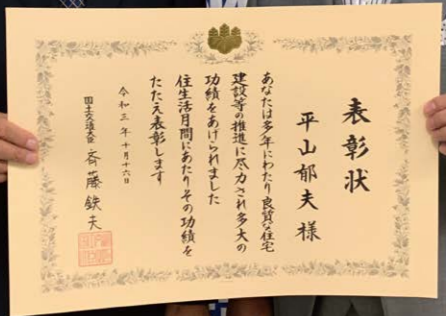 表彰状
平山郁夫様
あなたは多年にわたり良質な住宅
建設等の推進に尽力され多大の
功績をあげられました
住生活月間にあたりその功績を
たたえ表彰します
令和三年十月十六日
国土交通大臣 斉藤鉄夫